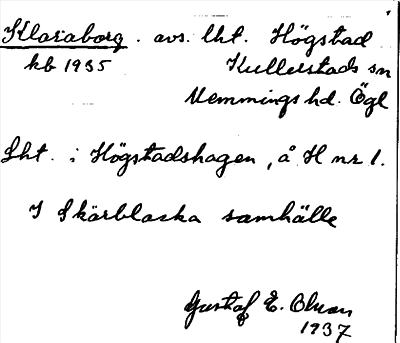 Klaraborg. avs. lht. Högstad
kb 1935 Kullerstads sn
Memmings hd. Ögl
Lht. i Högstadshagen, å H nr 1.
I Skärblacka samhälle
Gustaf E. Olson
1937